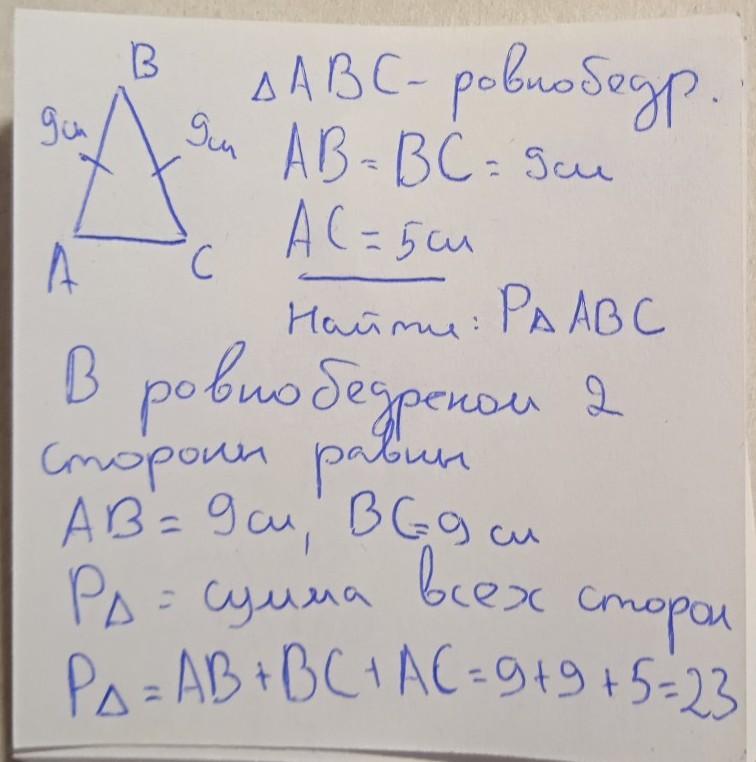 B
9см 9см
A C
△ABC - ровнобедр.
AB = BC = 9см
AC = 5см
Найти: P△ABC
В ровнобедреном 2
стороны равны
AB = 9см, BC = 9 см
P△ = сумма всех сторон
P△ = AB + BC + AC = 9+9+5=23